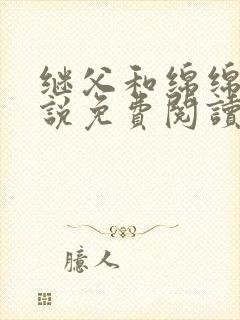 继父和綿綿
說免費閱讀
臆人